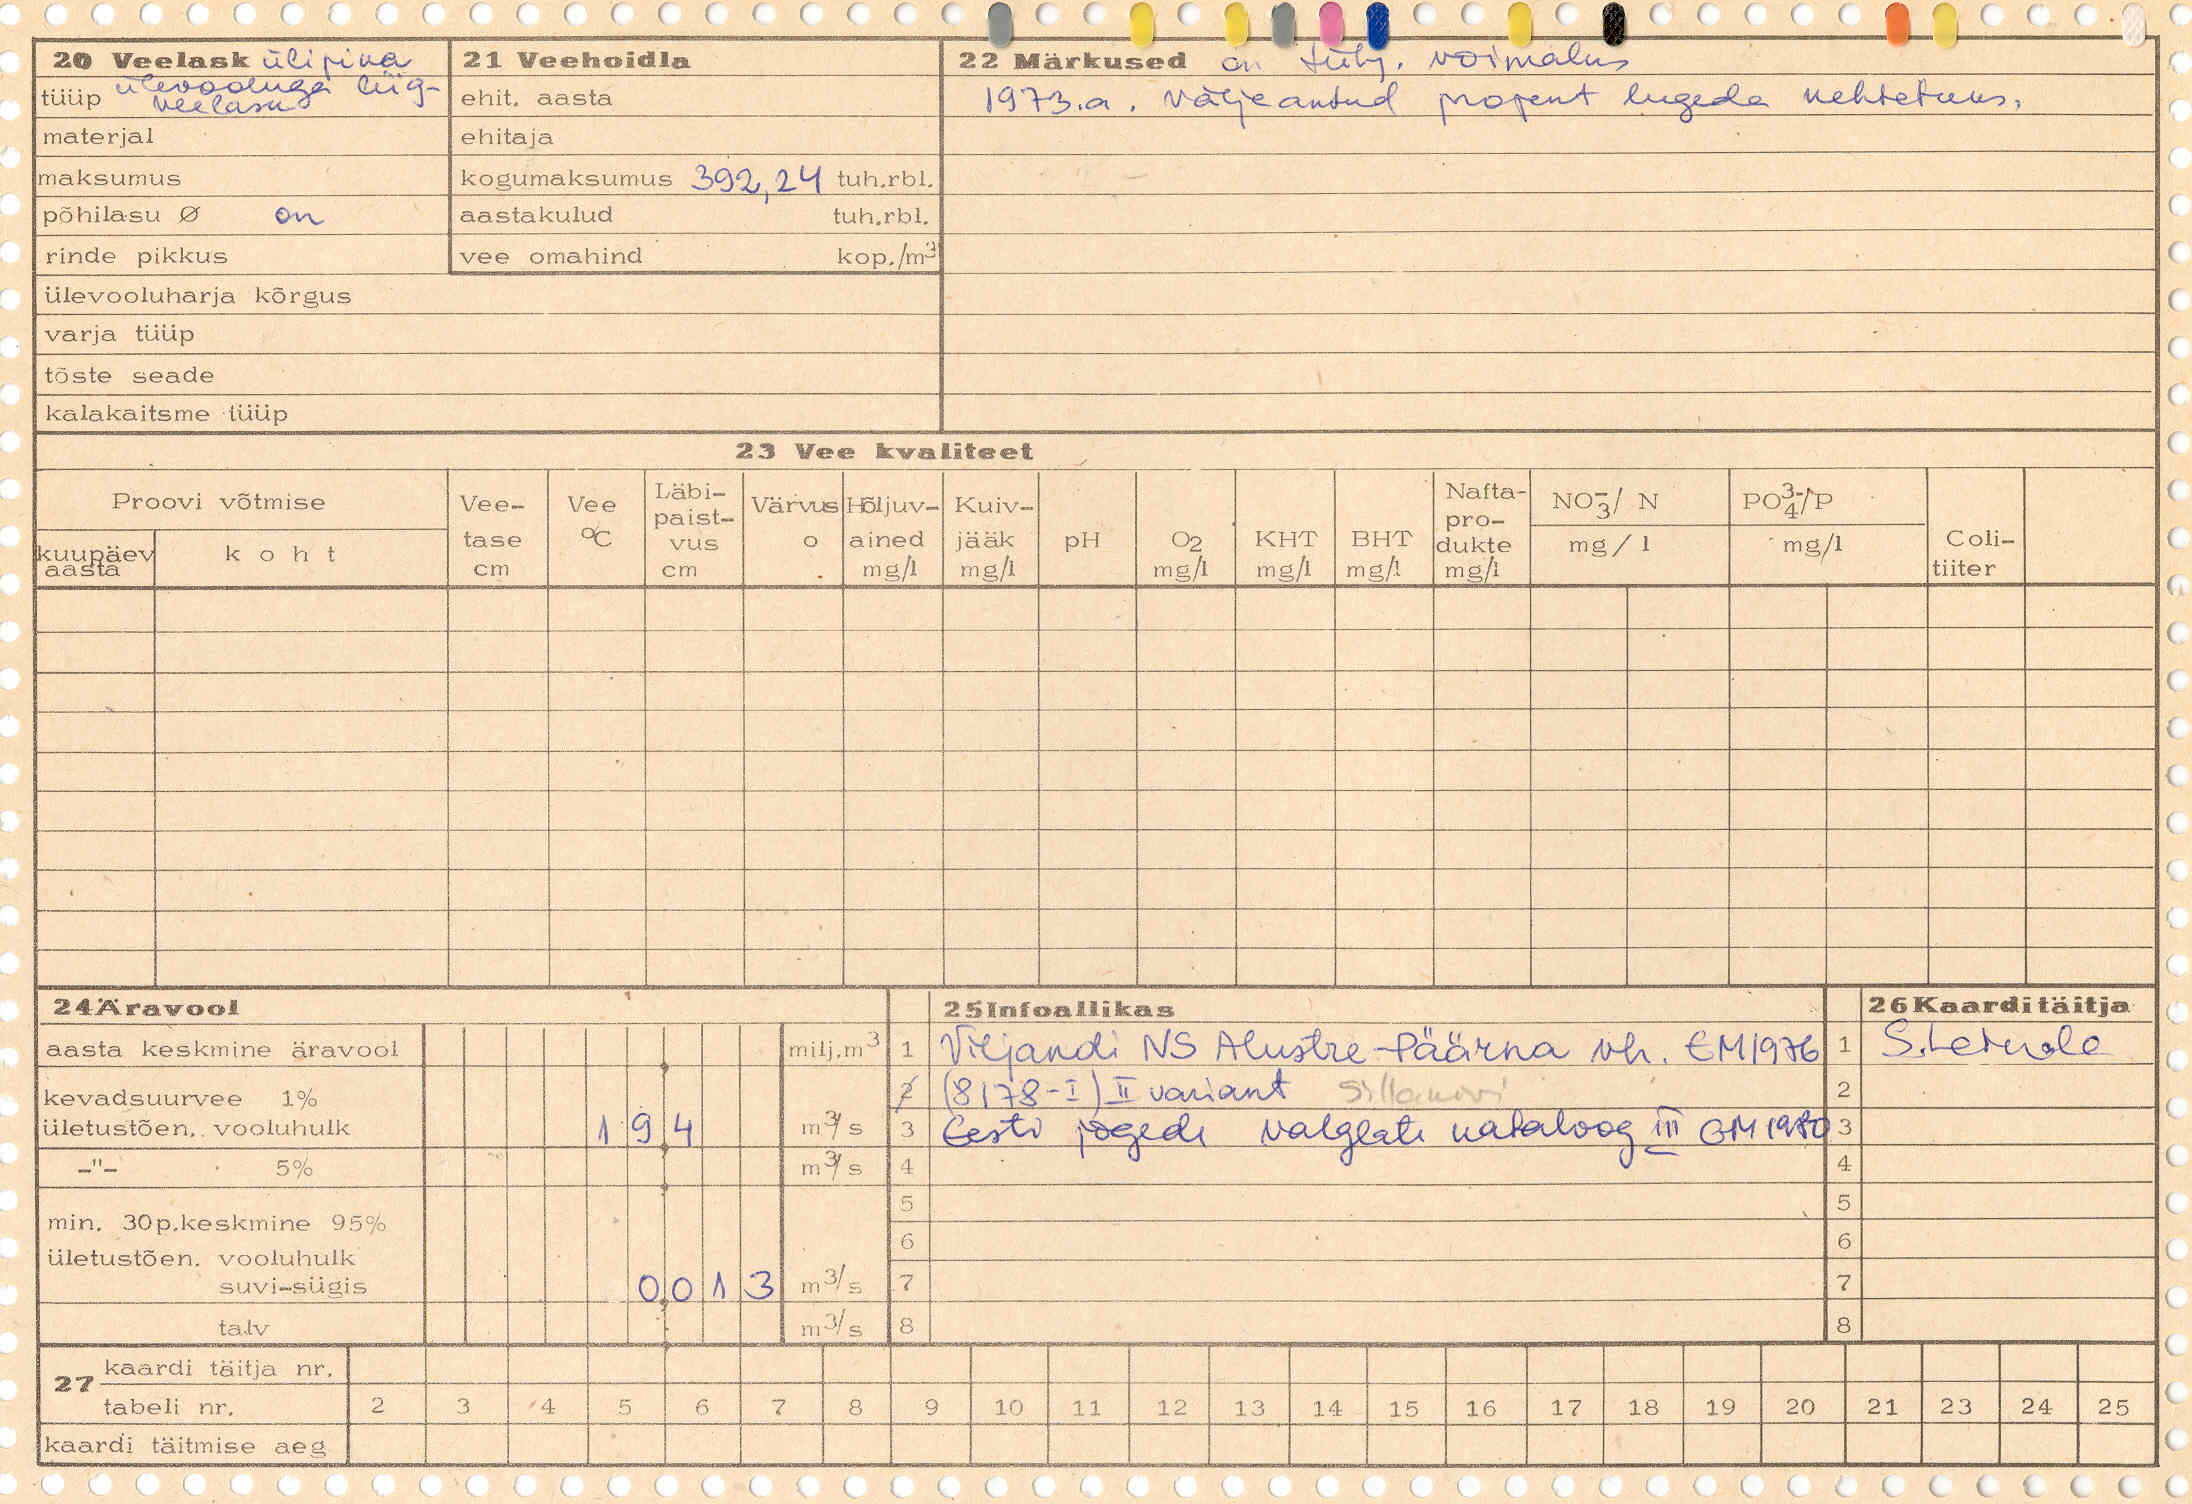 20 Veelask ülipina
tüüp ülevooluga liig-
veelasu
materjal
maksumus
põhilasu Ø on
rinde pikkus
ülevooluharja kõrgus
varja tüüp
tõste seade
kalakaitsme tüüp
21 Veehoidla
ehit. aasta
ehitaja
kogumaksumus 392,24 tuh.rbl.
aastakulud tuh.rbl.
vee omahind kop./m3
22 Märkused on tühj. võimalus
1973.a. väljeantud projent lugeda kehtetuks.
23 Vee kvaliteet
Proovi võtmise
kuupäev aasta
koht
Vee-
tase
cm
Vee
°C
Läbi-
paist-
vus
cm
Värvus
o
Hõljuv-
ained
mg/l
Kuiv-
jääk
mg/l
pH
O2
mg/l
KHT
mg/l
BHT
mg/l
Nafta-
pro-
dukte
mg/l
NO3-/ N
mg/l
PO4 3-/P
mg/l
Coli-
tiiter
24 Äravool
aasta keskmine äravool milj.m3
kevadsuurvee 1%
ületustõen. vooluhulk 194 m3/s
-"- 5% m3/s
min. 30p.keskmine 95%
ületustõen. vooluhulk
suvi-sügis 0013 m3/s
talv m3/s
25 Infoallikas
1 Viljandi NS Alustre-Päärna vh. EM1976
2 (8178-I) II variant
3 Eesti jõgede valglate kataloog III EM1980
4
5
6
7
8
26 Kaarditäitja
1
2
3
4
5
6
7
8
27 kaardi täitja nr.
tabeli nr. 2 3 4 5 6 7 8 9 10 11 12 13 14 15 16 17 18 19 20 21 23 24 25
kaardi täitmise aeg